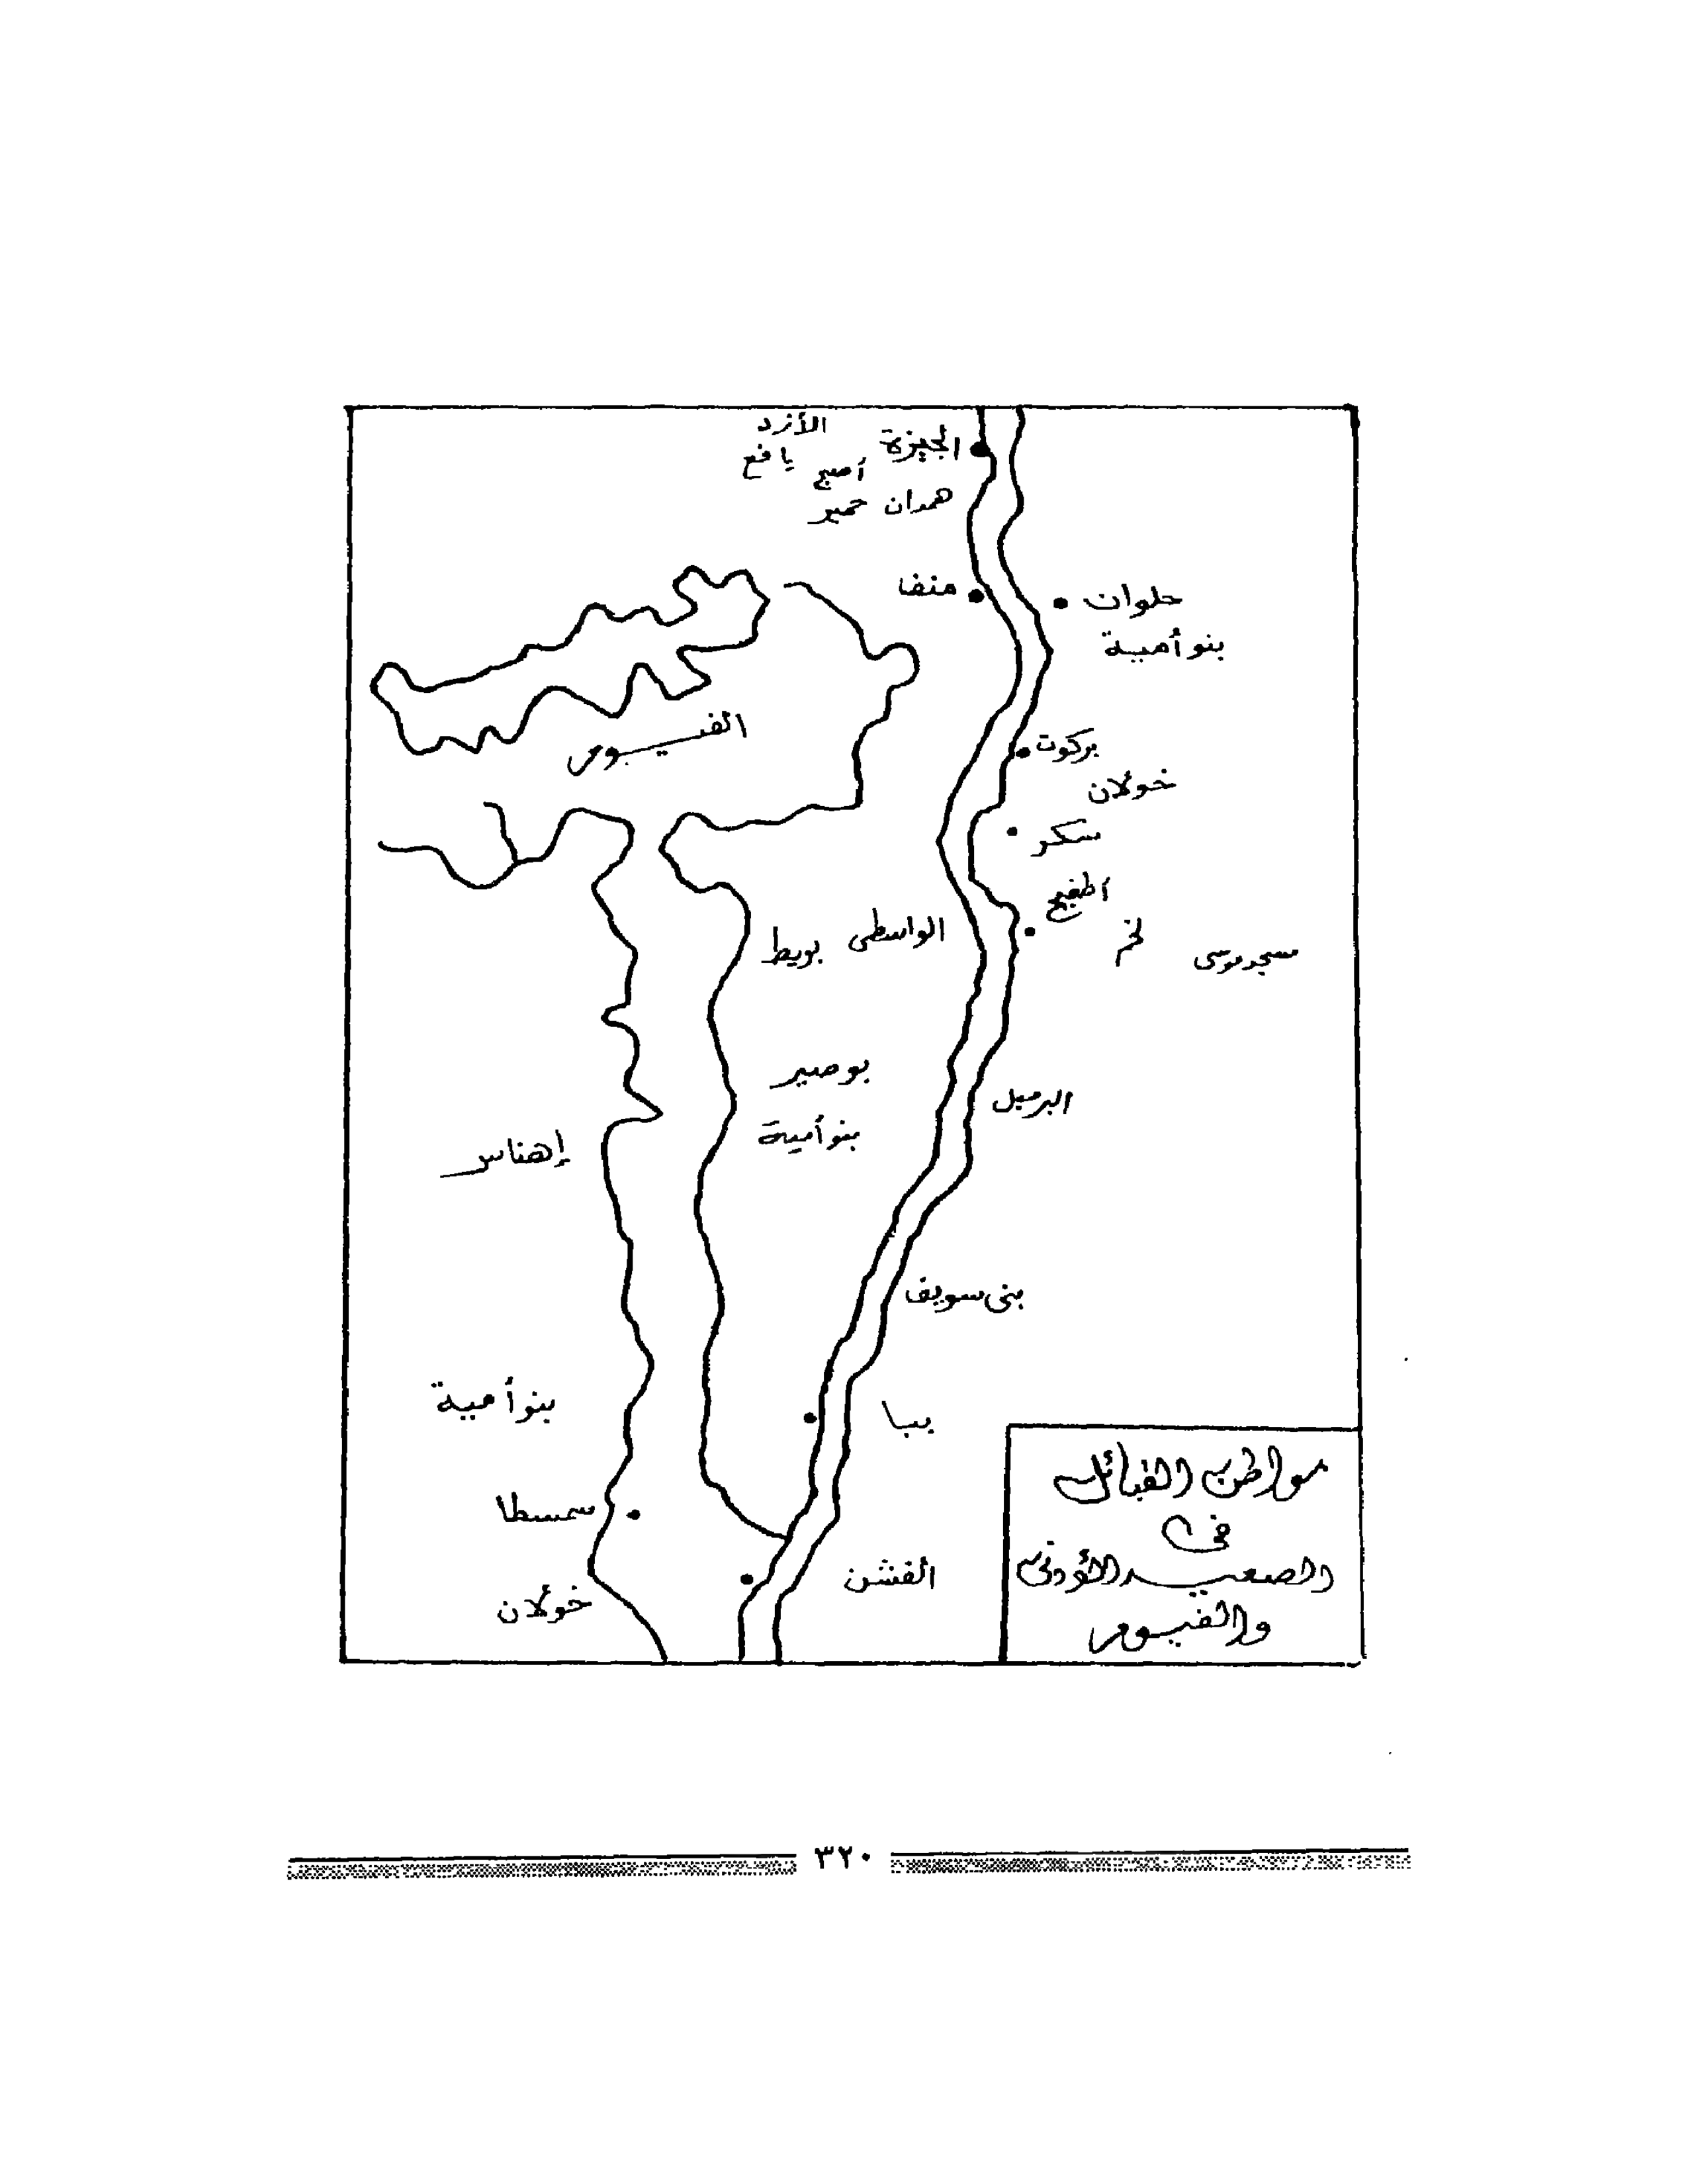 الأزد
الجيزة
يافع
أصبح
همدان حمير
منفا
حلوان
بنو أمية
الفيوم
بركوت
خولان
سكر
أطفيح
لخم
مسجد موسى
الواسطى
بويط
بوصير
البرميل
بنو أمية
إهناس
بنى سويف
بنو أمية
ببا
سمسطا
الفشن
خولان
مواطن القبائل
فى
الصعيد الأدنى
والفيوم
٣٢٠